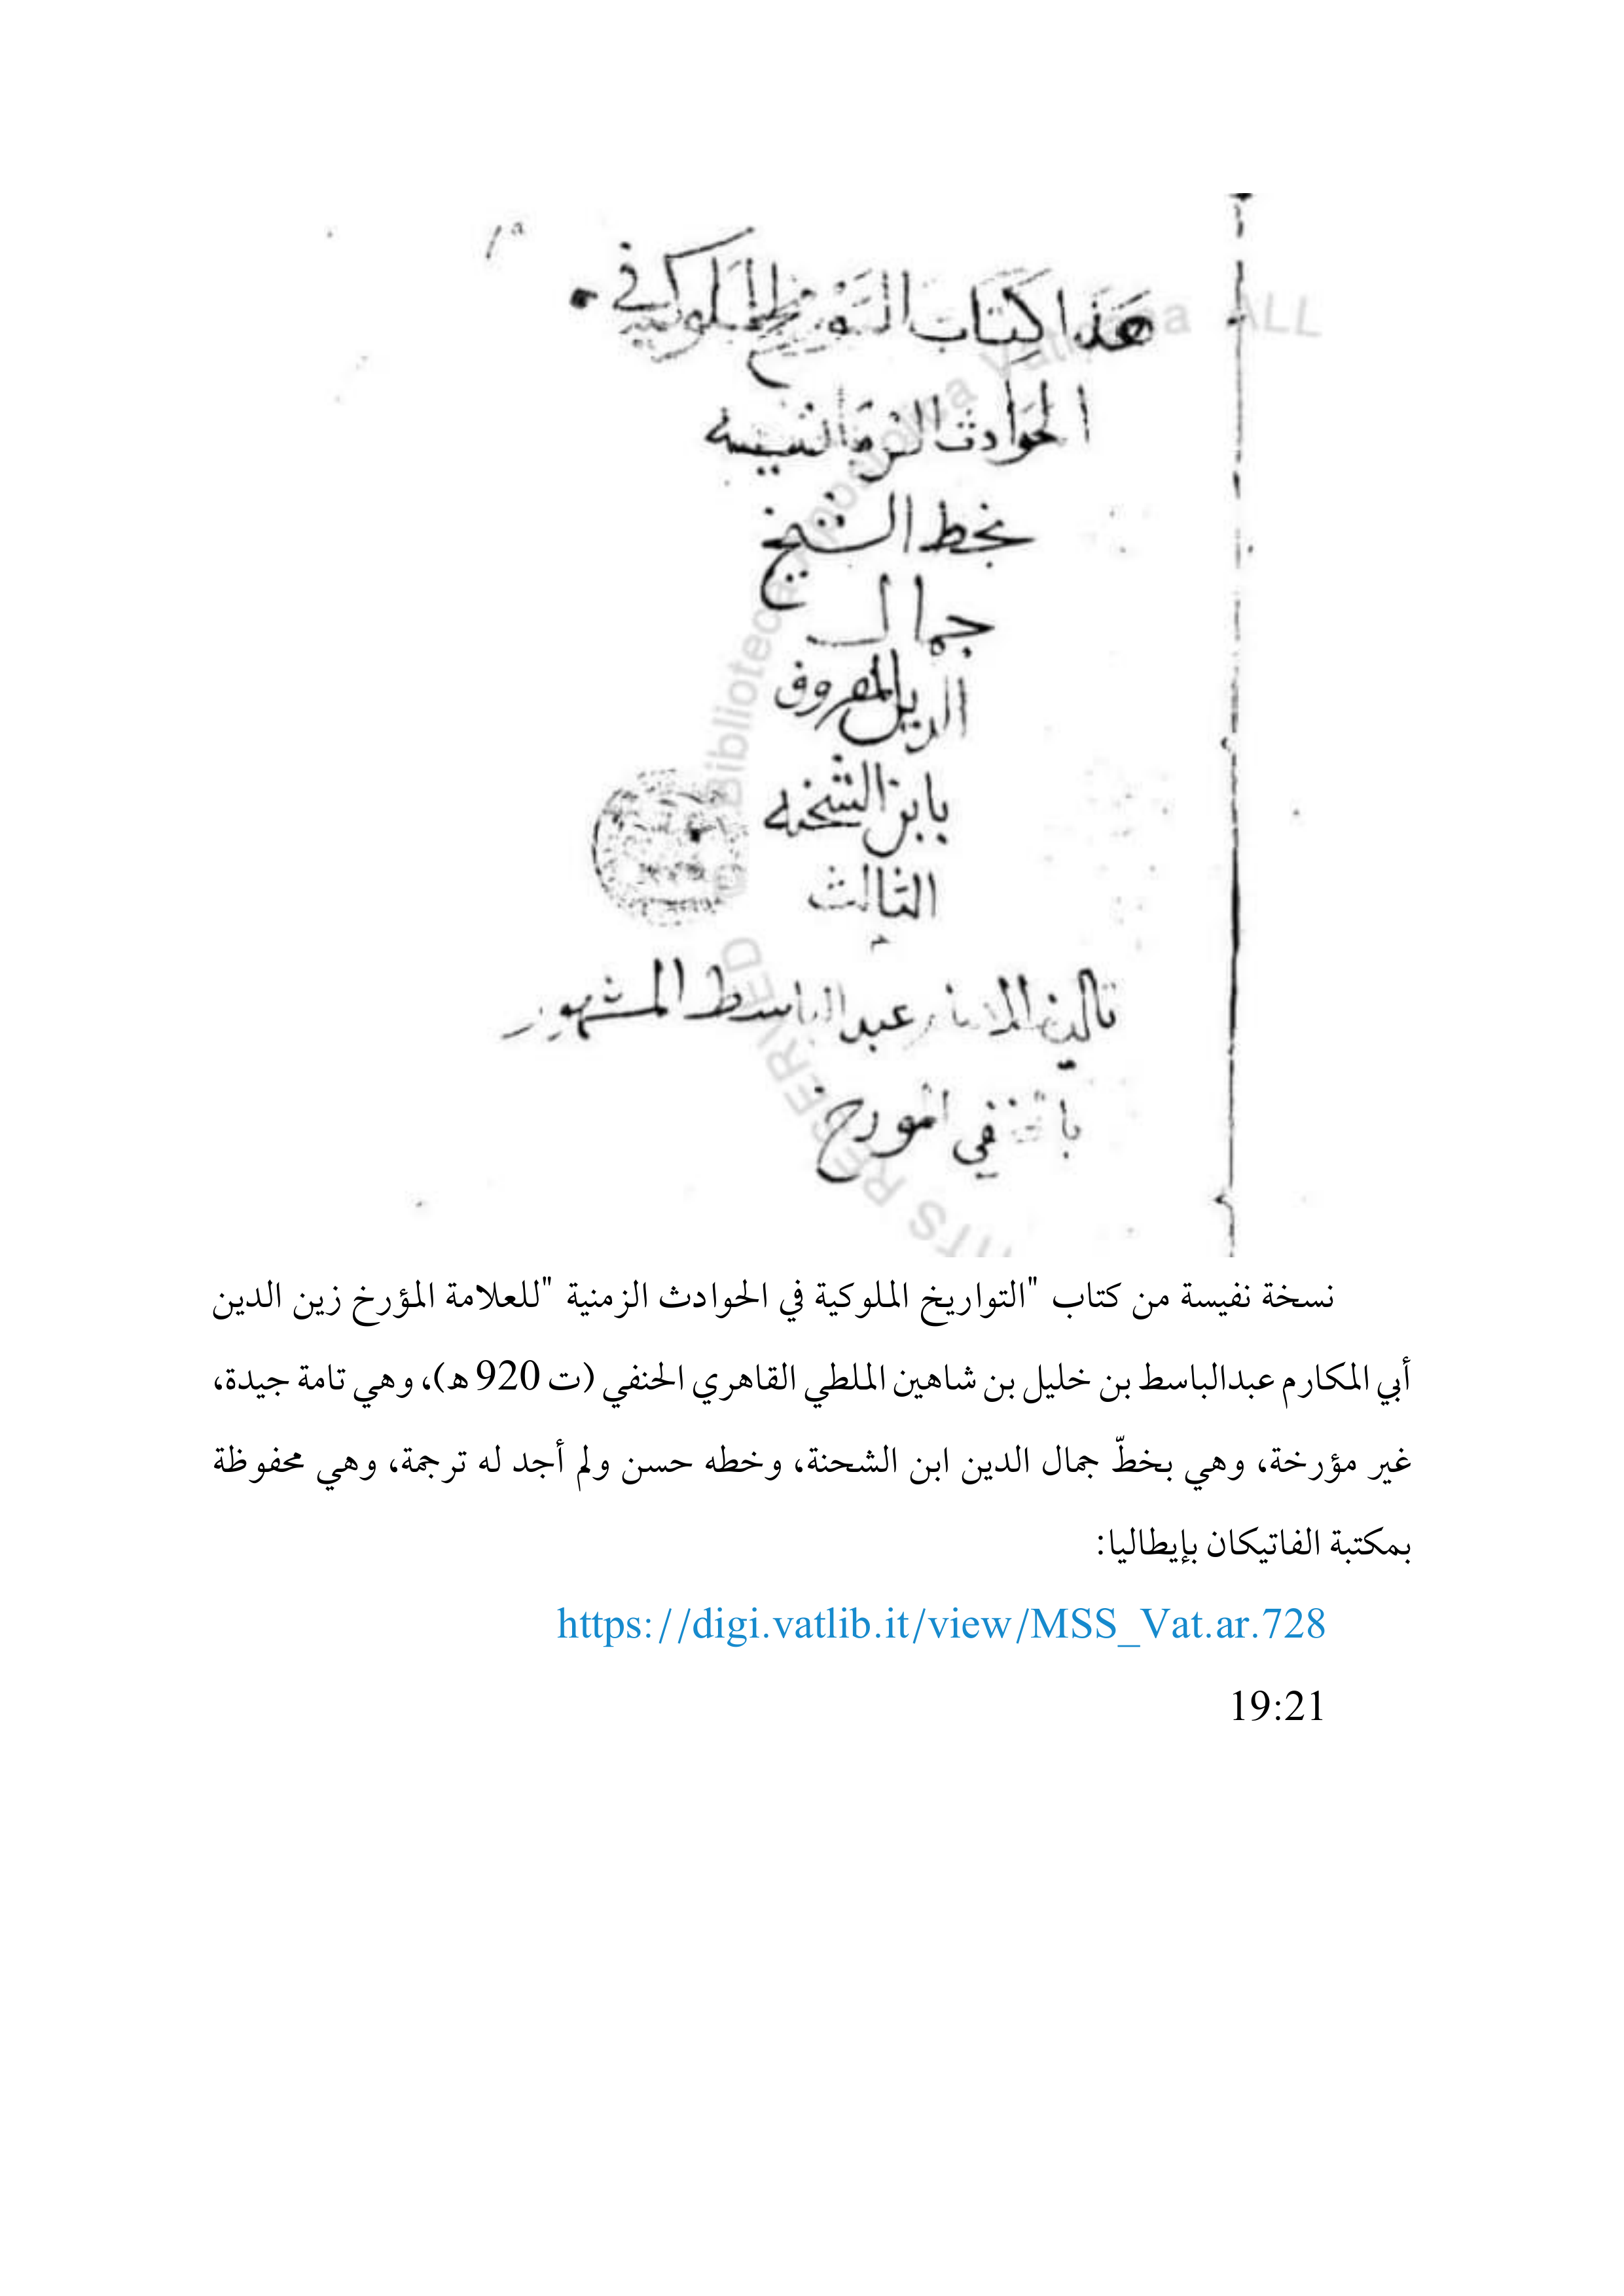 1a
هذا كتاب التواريخ الملوكية في
الحوادث الزمانية
بخط الشيخ
جمال
الدين المعروف
بابن الشحنه
الثالث
تاليف عبد الباسط المشهور
المورخ
نسخة نفيسة من كتاب "التواريخ الملوكية في الحوادث الزمنية "للعلامة المؤرخ زين الدين
أبي المكارم عبدالباسط بن خليل بن شاهين الملطي القاهري الحنفي (ت 920 ه)، وهي تامة جيدة،
غير مؤرخة، وهي بخطّ جمال الدين ابن الشحنة، وخطه حسن ولم أجد له ترجمة، وهي محفوظة
بمكتبة الفاتيكان بإيطاليا:
https://digi.vatlib.it/view/MSS_Vat.ar.728
19:21